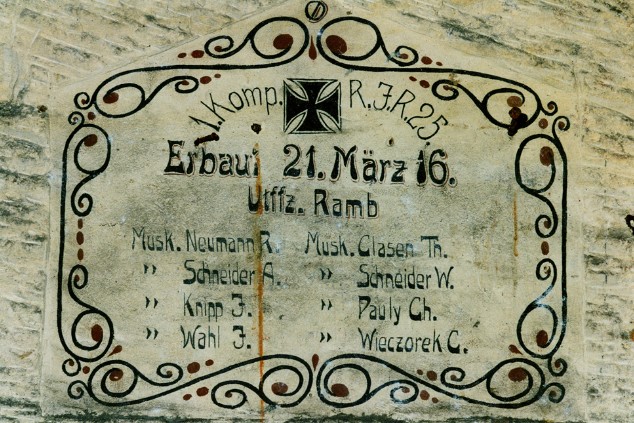 1. Komp. R.J.R. 25
Erbaut 21. März 16.
Utffz. Ramb
Musk. Neumann R. Musk. Clasen Th.
" Schneider A. " Schneider W.
" Knipp J. " Pauly Ch.
" Wahl J. " Wieczorek C.